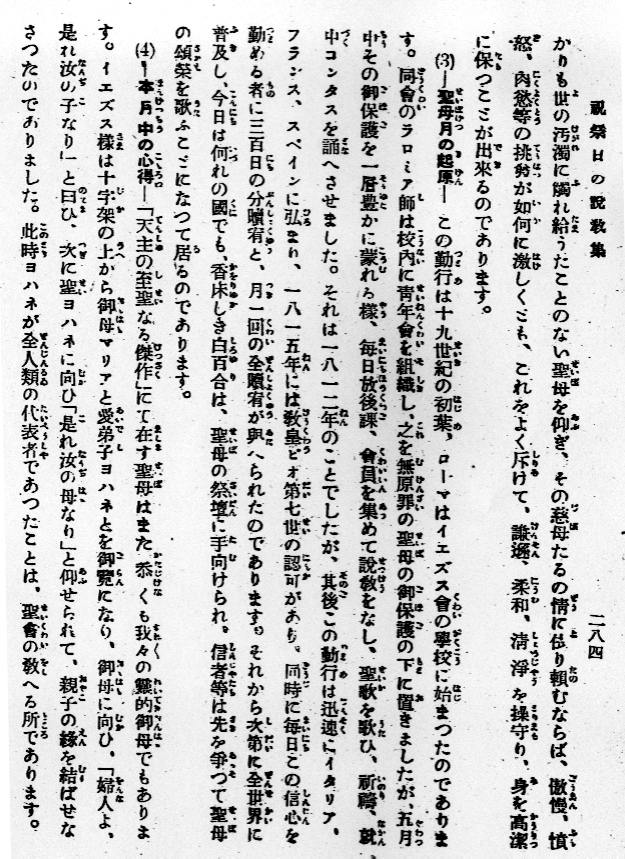 祝祭日の說敎集
二八四
かりも世の汚濁に觸れ給うたことのない聖母を仰ぎ、その慈母たるの情に依り賴むならば、傲慢、憤
怒、肉慾等の挑發が如何に激しくとも、これをよく斥けて、謙遜、柔和、淸淨を操守り、身を高潔
に保つことが出來るのであります。
(3)―聖母月の起原― この勤行は十九世紀の初葉、ローマはイエズス會の學校に始まつたのでありま
す。同會のラロミア師は校内に靑年會を組織し、之を無原罪の聖母の御保護の下に置きましたが、五月
中その御保護を一層豊かに蒙れる樣、每日放後課、會員を集めて說敎をなし、聖歌を歌ひ、祈禱、就
中コンタスを誦へさせました。それは一八一二年のことでしたが、其後この勤行は迅速にイタリア、
フランス、スペインに弘まり、一八一五年には敎皇ピオ第七世の認可があり、同時に每日この信心を
勤める者に三百日の分贖宥と、月一回の全贖宥が與へられたのであります。それから次第に全世界に
普及し、今日は何れの國でも、香床しき白百合は、聖母の祭壇に手向けられ、信者等は先を爭つて聖母
の頌榮を歌ふことになつて居るのであります。
(4)―本月中の心得―「天主の至聖なる傑作」にて在す聖母はまた忝くも我々の靈的御母でもありま
す。イエズス樣は十字架の上から御母マリアと愛弟子ヨハネとを御覽になり、御母に向ひ、「婦人よ、
是れ汝の子なり」と曰ひ、次に聖ヨハネに向ひ「是れ汝の母なり」と仰せられて、親子の緣を結ばせな
さつたのでありました。此時ヨハネが全人類の代表者であつたことは、聖會の敎へる所であります。